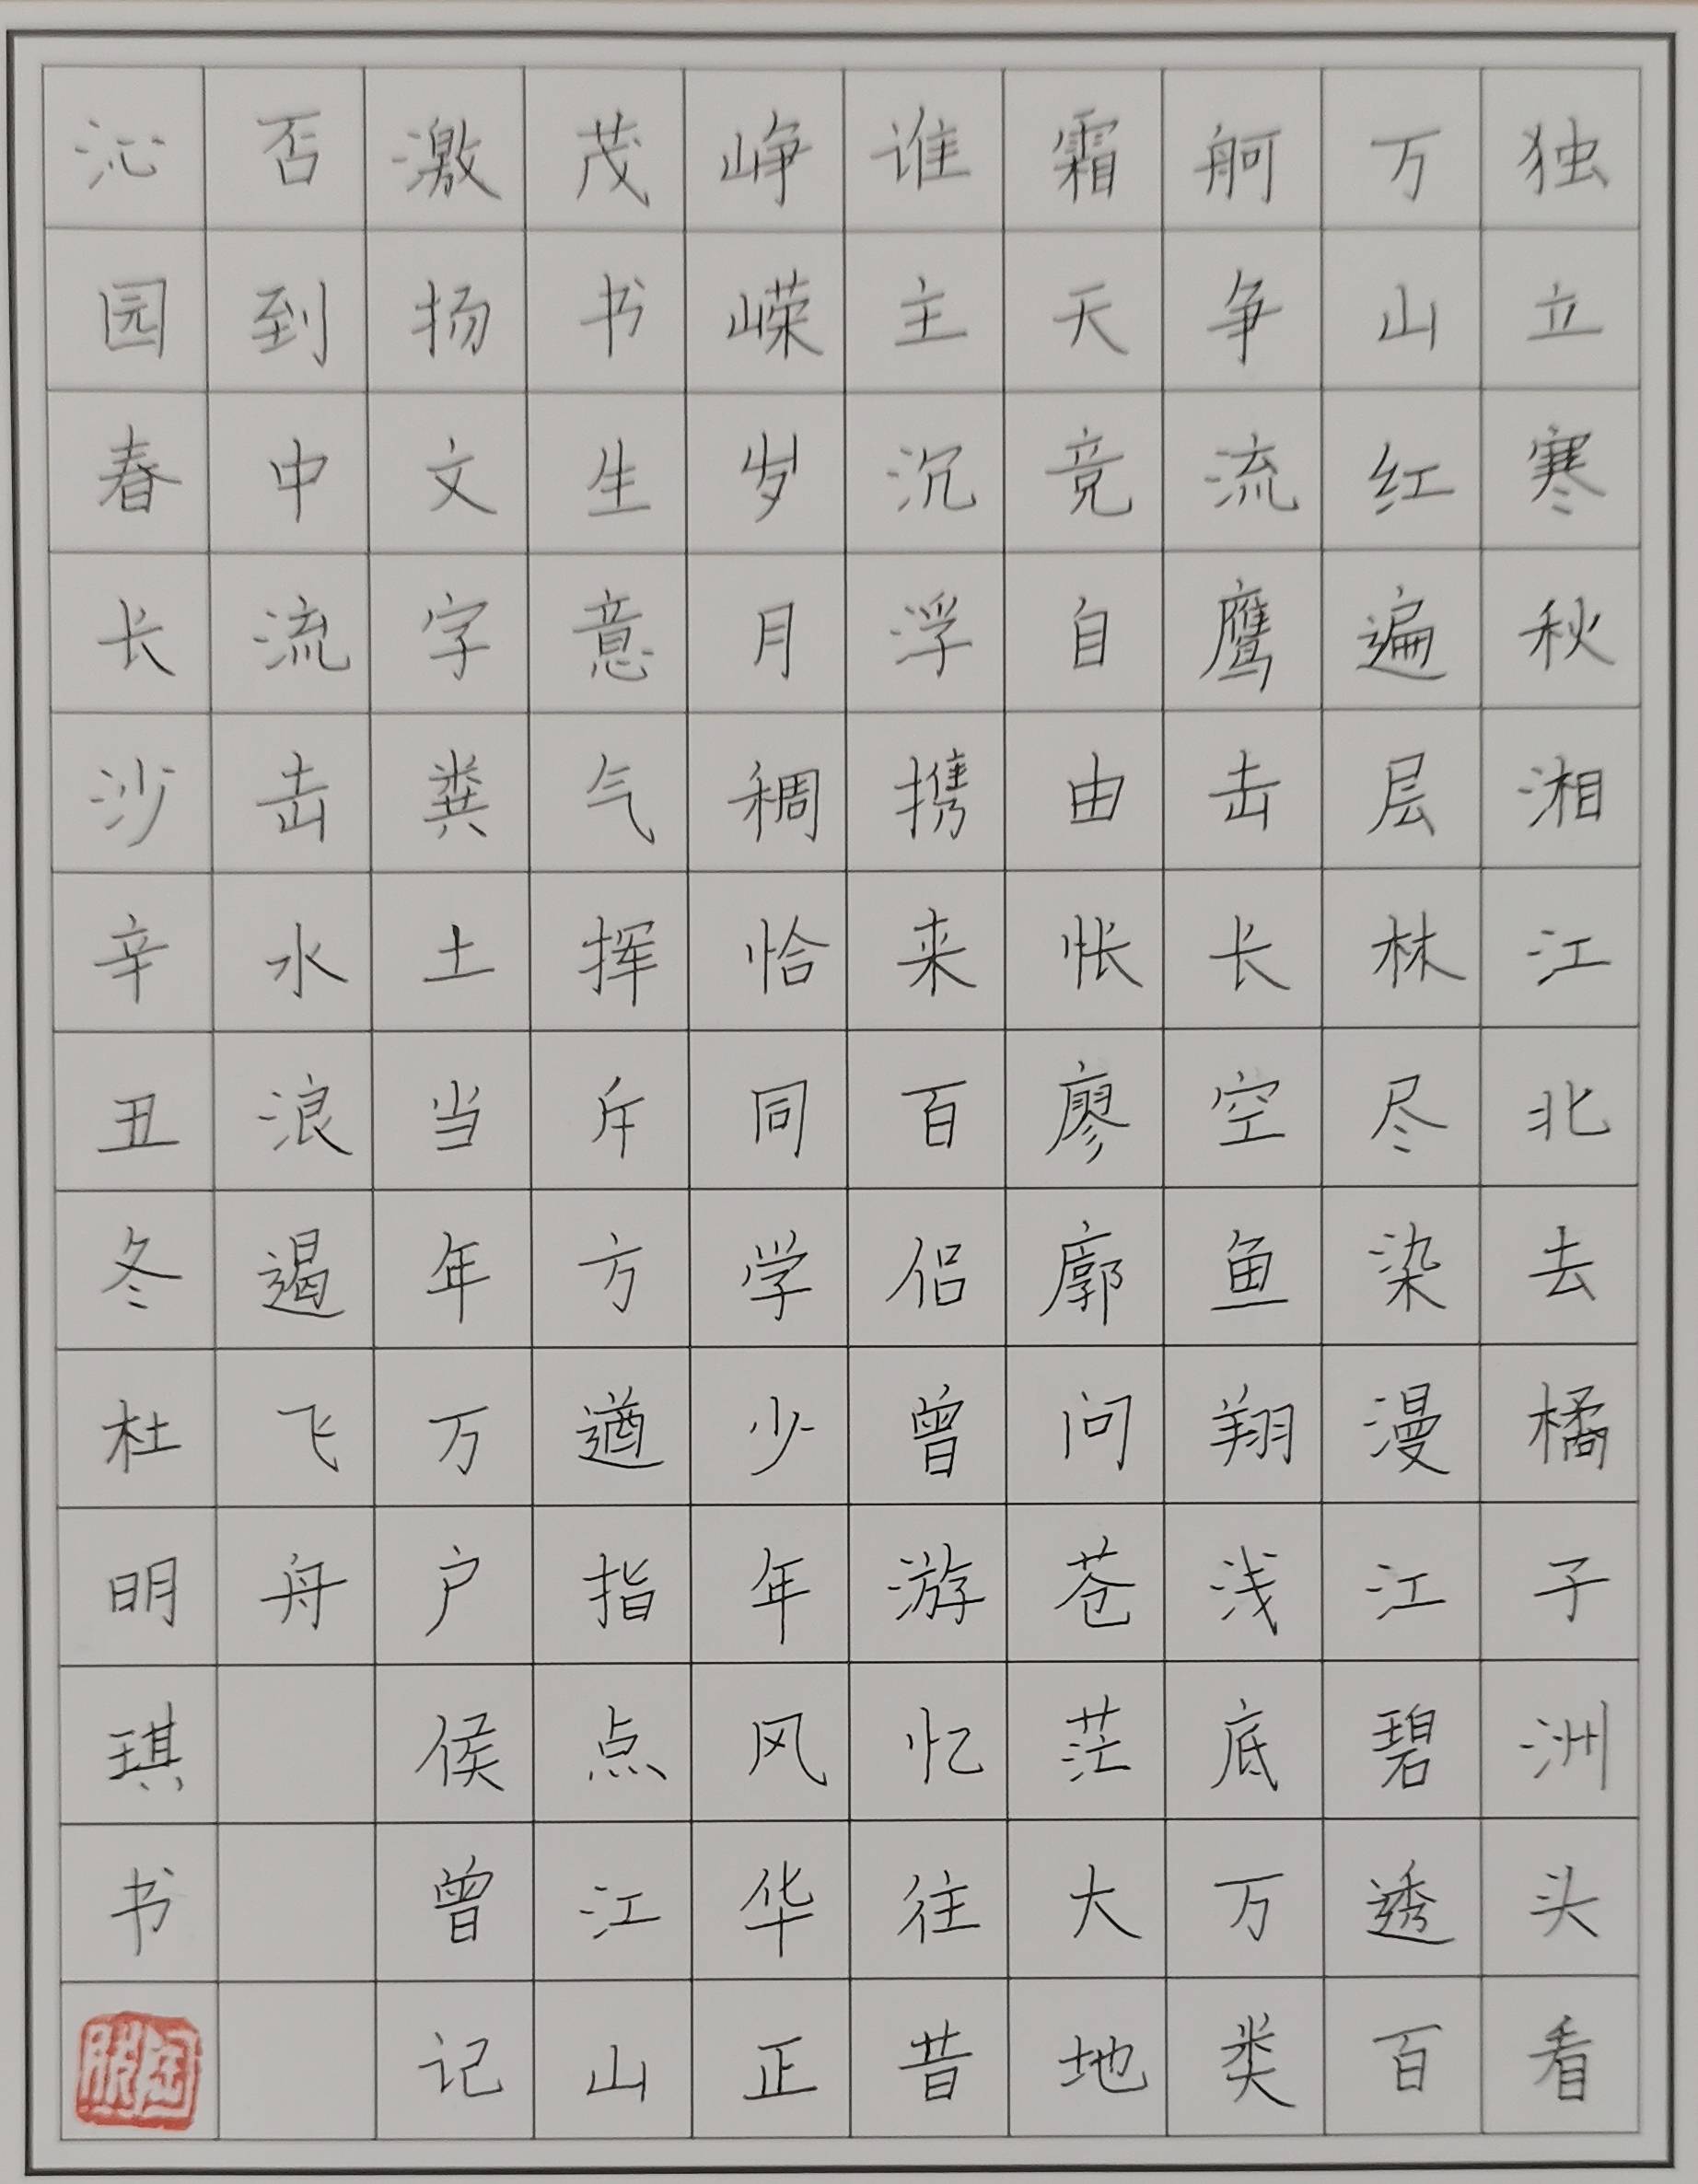 独立寒秋湘江北去橘子洲头看
万山红遍层林尽染漫江碧透百
舸争流鹰击长空鱼翔浅底万类
霜天竞自由怅廖廓问苍茫大地
谁主沉浮携来百侣曾游忆往昔
峥嵘岁月稠恰同学少年风华正
茂书生意气挥斥方遒指点江山
激扬文字粪土当年万户侯曾记
否到中流击水浪遏飞舟
沁园春长沙辛丑冬杜明琪书